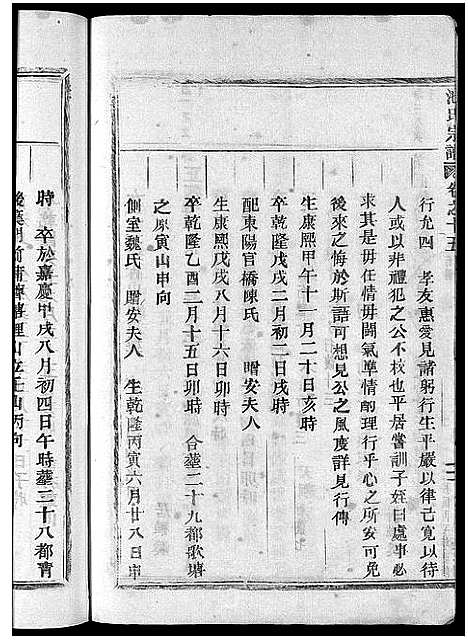 氏宗譜 卷之十五
行允四 孝友惠愛見諸躬行生平嚴以律己寬以待
人或以非禮犯之公不校也平居嘗訓子姪曰處事必
求其是毋任情毋鬪氣準情酌理行乎心之所安可免
後來之悔於斯語可想見公之風度詳見行傳
生康熙甲午十一月二十日亥時
卒乾隆戊戌二月初二日戌時
配東陽官橋陳氏 贈安夫人
生康熙戊戌八月十六日卯時
卒乾隆乙酉二月十五日卯時 合塟二十九都歌塘
之原寅山申向
側室魏氏 贈安夫人 生乾隆丙寅六月廿八日申
時 卒於嘉慶甲戌八月初四日午時塟三十八都青
山丙向